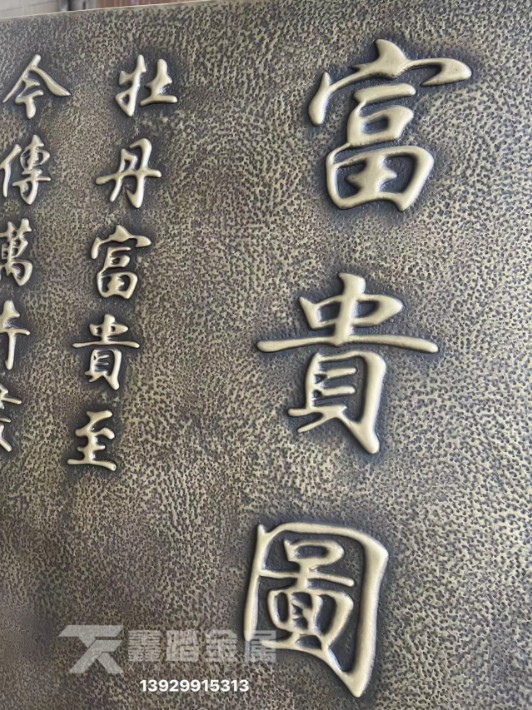 富貴圖
牡丹富貴至
今傳萬
鑫踏金属
13929915313